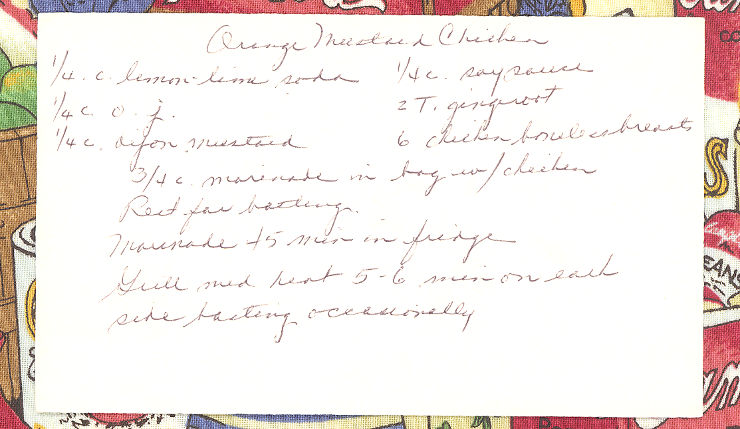 Orange Mustard Chicken
1/4. c. lemon-lime soda 1/4 c. soy sauce
1/4 c. o. j. 2 T. gingeroot
1/4 c. dijon mustard 6 chicken boneless breasts
3/4 c. marinade in bag w/chicken
Rest for basting.
Marinade 45 min in fridge
Grill med heat 5-6 min on each
side basting occasionally